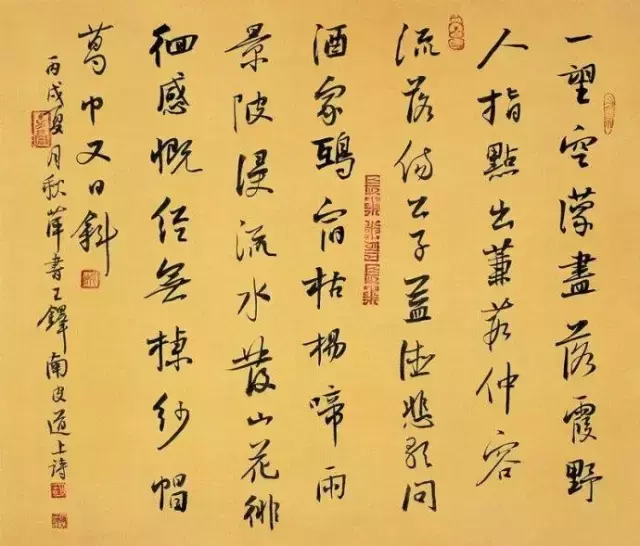 一望空濛盡落霞野
人指點出蒹葭仲容
流落傷公子益德悲歌問
酒家鵶宿枯楊啼雨
景陂浸流水發山花徘
徊感慨經無紗帽
葛巾又日斜
丙戌夏月秋萍書王鐸南皮道上詩